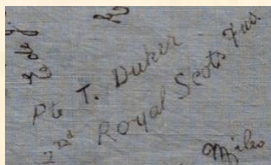 Pte T. Duker
2nd Royal Scots Fus.
Miles